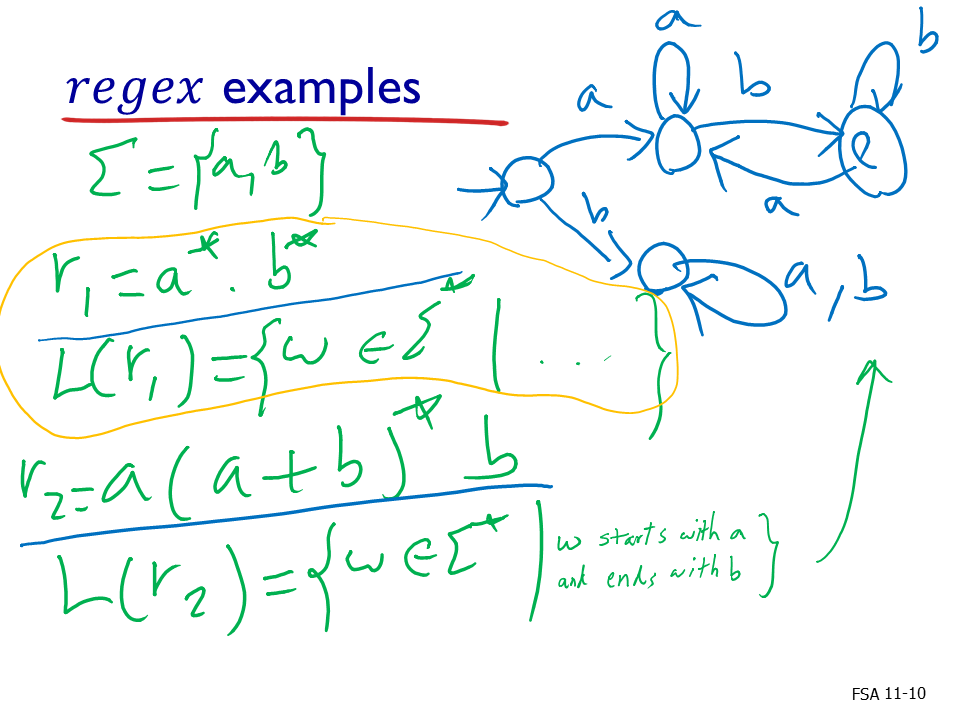 regex examples
Σ = {a, b}
r₁ = a* . b*
L(r₁) = {w ∈ Σ* | . . . }
r₂ = a (a + b)* b
L(r₂) = {w ∈ Σ* | w starts with a
and ends with b }
a
b
a
b
a
b
a, b
FSA 11-10